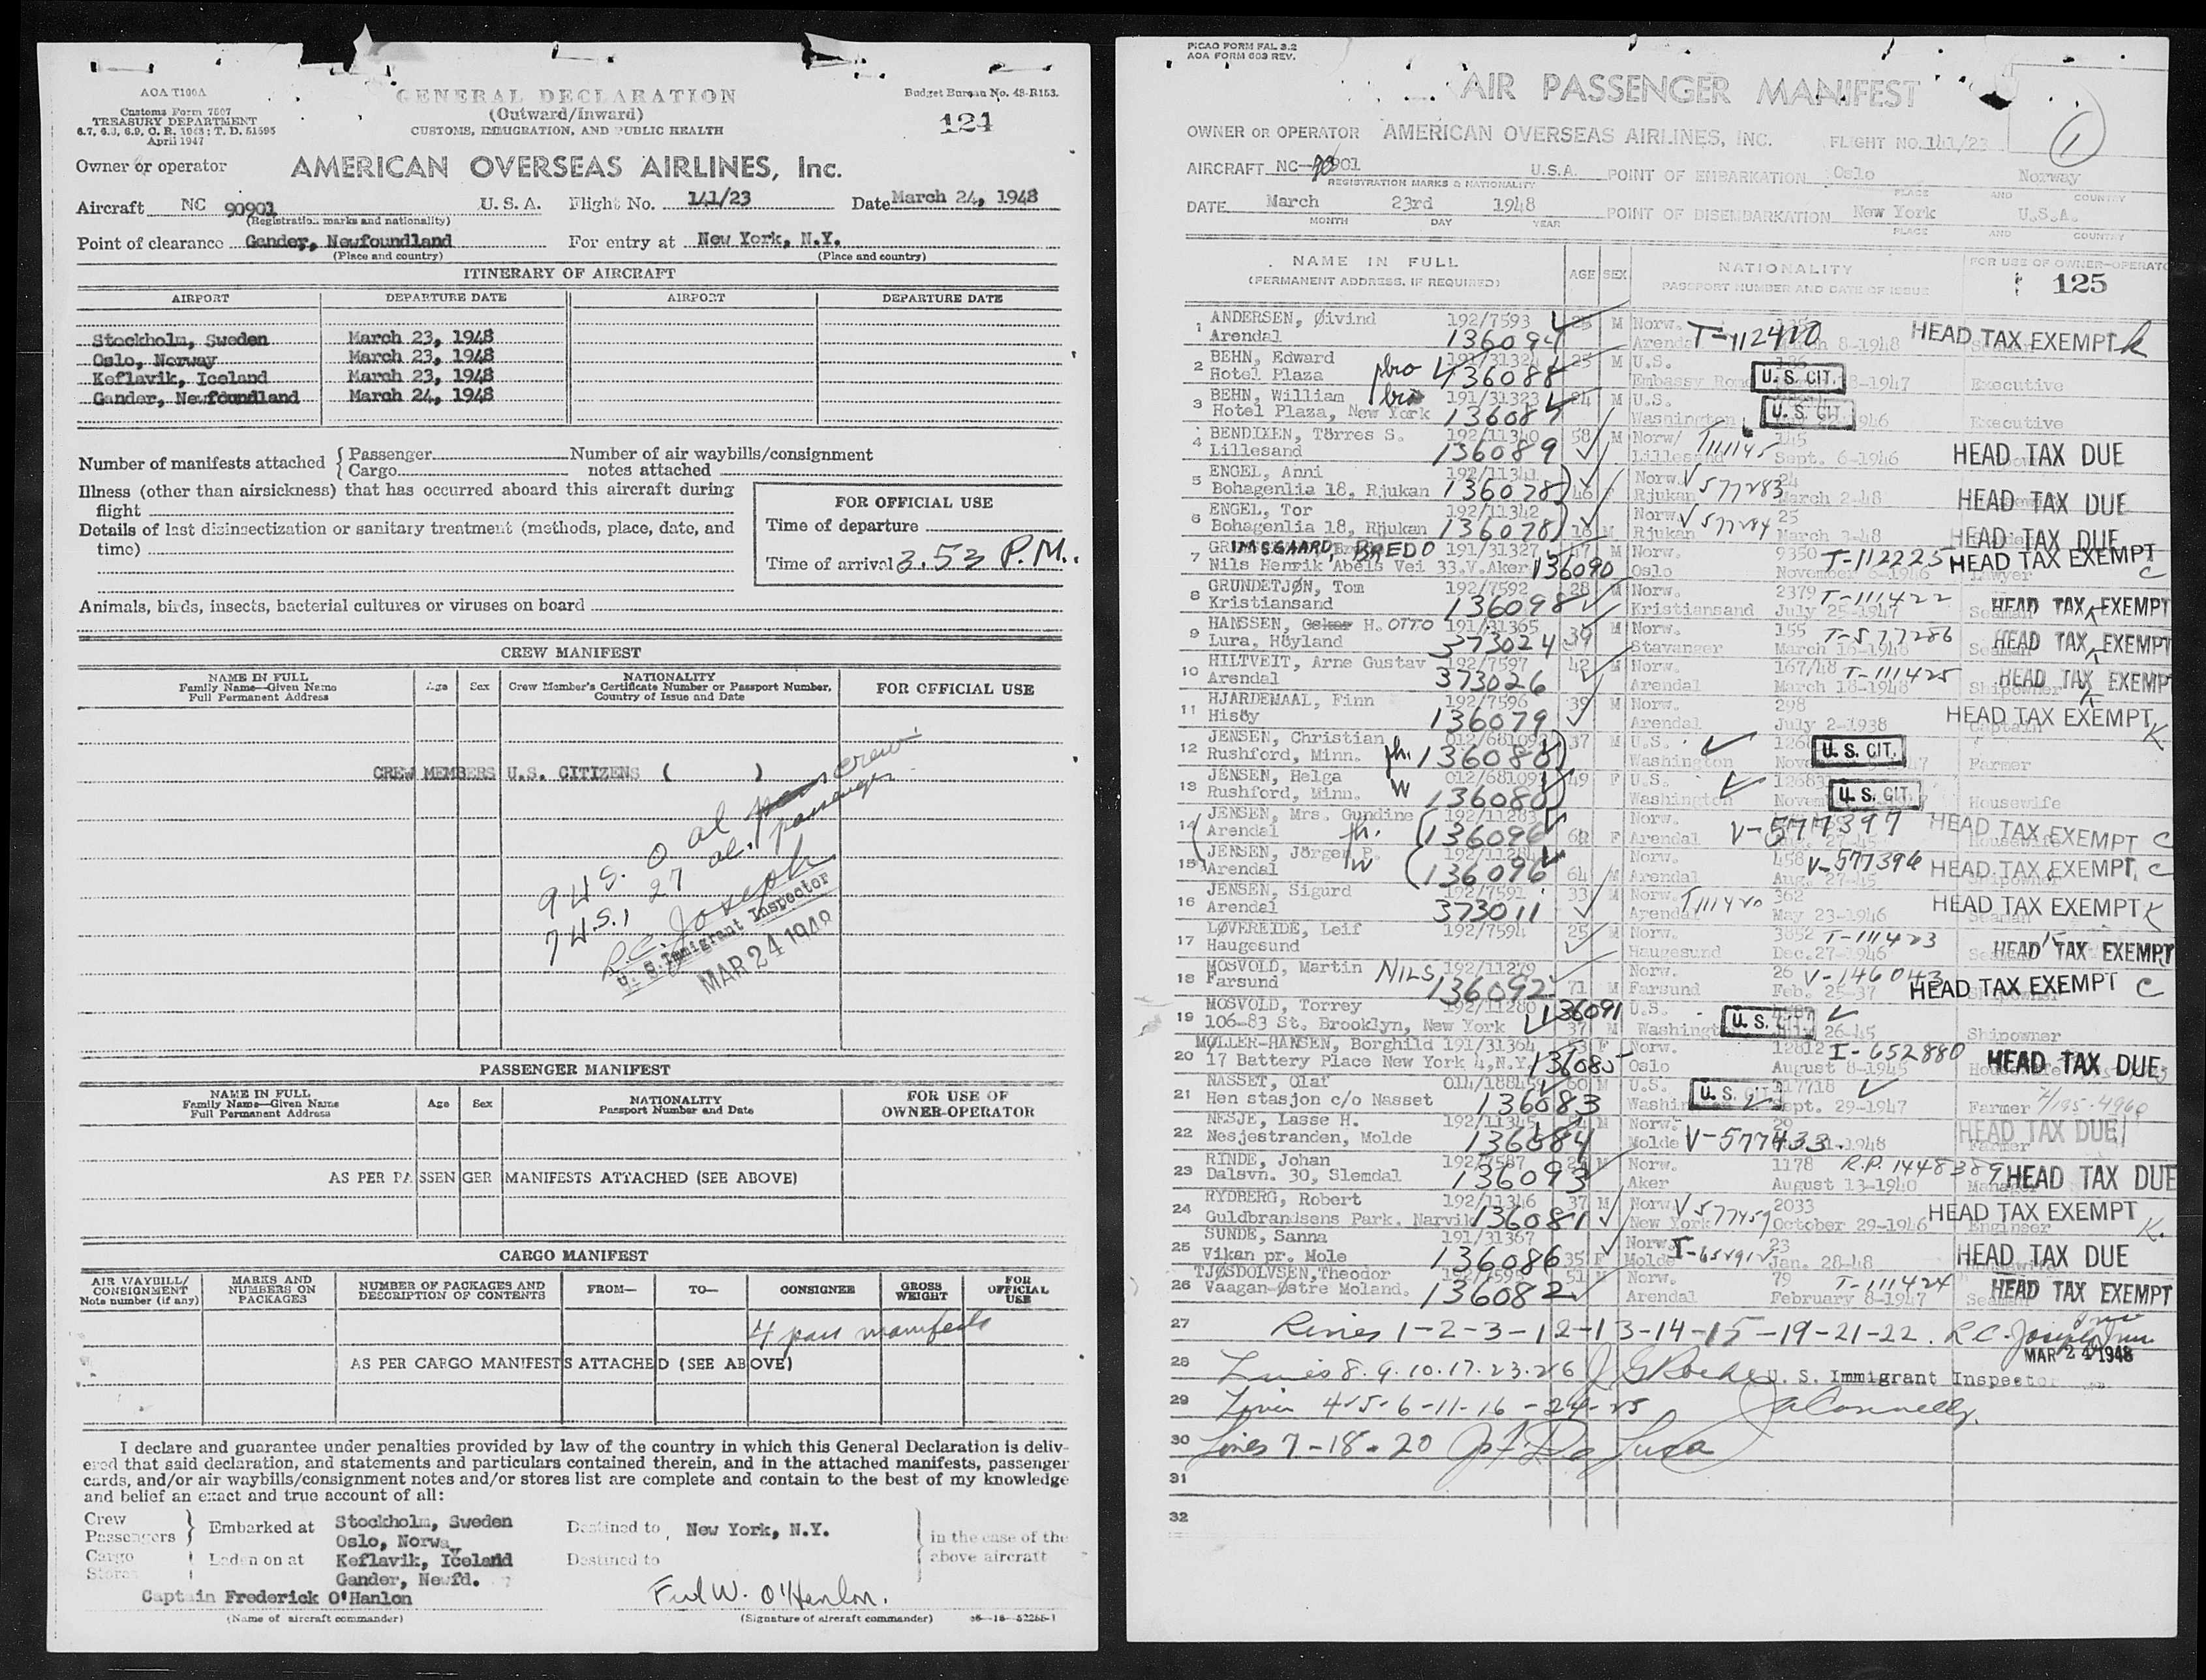 AOA T100A
Customs Form 7507
TREASURY DEPARTMENT
6.7, 6.8, 6.9, C. R. 1943; T. D. 51595
April 1947
GENERAL DECLARATION
(Outward/Inward)
CUSTOMS, IMMIGRATION, AND PUBLIC HEALTH
Budget Bureau No. 48-R153.
124
Owner or operator AMERICAN OVERSEAS AIRLINES, Inc.
Aircraft NC 90901 U. S. A. Flight No. 141/23 Date March 24, 1948
(Registration marks and nationality)
Point of clearance Gander, Newfoundland For entry at New York, N.Y.
(Place and country) (Place and country)
ITINERARY OF AIRCRAFT
AIRPORT DEPARTURE DATE AIRPORT DEPARTURE DATE
Stockholm, Sweden March 23, 1948
Oslo, Norway March 23, 1948
Keflavik, Iceland March 23, 1948
Gander, Newfoundland March 24, 1948
Number of manifests attached { Passenger Number of air waybills/consignment
Cargo notes attached
Illness (other than airsickness) that has occurred aboard this aircraft during
flight
Details of last disinsectization or sanitary treatment (methods, place, date, and
time)
FOR OFFICIAL USE
Time of departure
Time of arrival 3.53 P.M.
Animals, birds, insects, bacterial cultures or viruses on board
CREW MANIFEST
NAME IN FULL
Family Name—Given Name
Full Permanent Address
Age Sex
NATIONALITY
Crew Member's Certificate Number or Passport Number,
Country of Issue and Date
FOR OFFICIAL USE
CREW MEMBERS U.S. CITIZENS ( )
9 US. 0 al crew
7 U.S., 27 al. passenger
R.C. Joseph
U. S. Immigrant Inspector
MAR 24 1948
PASSENGER MANIFEST
NAME IN FULL
Family Name—Given Name
Full Permanent Address
Age Sex
NATIONALITY
Passport Number and Date
FOR USE OF
OWNER-OPERATOR
AS PER PASSENGER MANIFESTS ATTACHED (SEE ABOVE)
CARGO MANIFEST
AIR WAYBILL/
CONSIGNMENT
Note number (if any)
MARKS AND
NUMBERS ON
PACKAGES
NUMBER OF PACKAGES AND
DESCRIPTION OF CONTENTS
FROM— TO— CONSIGNEE
GROSS
WEIGHT
FOR
OFFICIAL
USE
4 pass manifests
AS PER CARGO MANIFESTS ATTACHED (SEE ABOVE)
I declare and guarantee under penalties provided by law of the country in which this General Declaration is deliv-
ered that said declaration, and statements and particulars contained therein, and in the attached manifests, passenger
cards, and/or air waybills/consignment notes and/or stores list are complete and contain to the best of my knowledge
and belief an exact and true account of all:
Crew
Passengers } Embarked at Stockholm, Sweden Destined to New York, N.Y.
Oslo, Norway
in the case of the
Cargo
Stores Laden on at Keflavik, Iceland Destined to above aircraft
Gander, Newfd.
Captain Frederick O'Hanlon Fred W. O'Hanlon.
(Name of aircraft commander) (Signature of aircraft commander) 16—18—52255-1
PICAO FORM FAL 3.2
AOA FORM 603 REV.
AIR PASSENGER MANIFEST
1
OWNER OR OPERATOR AMERICAN OVERSEAS AIRLINES, INC. FLIGHT NO. 141/23
AIRCRAFT NC-90901 U.S.A. POINT OF EMBARKATION Oslo Norway
REGISTRATION MARKS & NATIONALITY PLACE AND COUNTRY
DATE March 23rd 1948 POINT OF DISEMBARKATION New York U.S.A.
MONTH DAY YEAR PLACE AND COUNTRY
NAME IN FULL
(PERMANENT ADDRESS, IF REQUIRED)
AGE SEX
NATIONALITY
PASSPORT NUMBER AND DATE OF ISSUE
FOR USE OF OWNER-OPERATOR
125
1 ANDERSEN, Øivind 192/7593 25 M Norw.
Arendal 136094 Arendal T-112410 8-1948 HEAD TAX EXEMPT K
2 BEHN, Edward 191/31324 25 M U.S. 186
Hotel Plaza 136088 Embassy U. S. CIT. 8-1947 Executive
3 BEHN, William bro 191/31323 24 M U.S.
Hotel Plaza, New York 136087 Washington U. S. CIT. 1946 Executive
4 BENDIXEN, Törres S. 192/11340 58 M Norw/ T111145 145
Lillesand 136089 Lillesand Sept. 6-1946 HEAD TAX DUE
5 ENGEL, Anni 192/11341 Norw. V577283 24
Bohagenlia 18, Rjukan 136078 46 F Rjukan March 2-48 HEAD TAX DUE
6 ENGEL, Tor 192/11342 Norw. V577284 25
Bohagenlia 18, Rjukan 136078 16 M Rjukan March 3-48 HEAD TAX DUE
7 IMSGAARD, BREDO 191/31327 47 M Norw. 9350 T-112225 HEAD TAX EXEMPT C
Nils Henrik Abels Vei 33.V.Aker 136090 Oslo November 6-1946 Lawyer
8 GRUNDETJØN, Tom 192/7592 28 M Norw. 2379 T-111422
Kristiansand 136098 Kristiansand July 25-1947 Seaman HEAD TAX EXEMPT
9 HANSSEN, Oskar H. OTTO 191/31365 39 M Norw. 155 T-577286
Lura, Höyland 373024 Stavanger March 16-1948 HEAD TAX EXEMPT
10 HILTVEIT, Arne Gustav 192/7597 42 M Norw. 167/48 T-111425
Arendal 373026 Arendal March 18-1948 Shipowner HEAD TAX EXEMPT
11 HJARDEMAAL, Finn 192/7596 39 M Norw. 298
Hisöy 136079 Arendal July 2-1938 Captain HEAD TAX EXEMPT K
12 JENSEN, Christian 012/681092 37 M U.S.
Rushford, Minn. 136080 Washington U. S. CIT. Farmer
13 JENSEN, Helga 012/681091 49 F U.S. 12683
Rushford, Minn. W 136080 Washington U. S. CIT. Housewife
14 JENSEN, Mrs. Gundine 192/11283 Norw.
Arendal 136096 F Arendal V-577397 HEAD TAX EXEMPT C
15 JENSEN, Jörgen P. 192/11284 Norw. 458 V-577396
Arendal W 136096 64 M Arendal Aug. 27-45 Shipowner HEAD TAX EXEMPT, C
16 JENSEN, Sigurd 192/7591 33 M Norw. T111420 362
Arendal 373011 Arendal May 23-1946 Seaman HEAD TAX EXEMPT K
17 LØVEREIDE, Leif 192/7594 25 M Norw. 3852 T-111423
Haugesund Haugesund Dec. 27-1946 HEAD TAX EXEMPT
18 MOSVOLD, Martin NILS 192/11279 Norw. 26 V-146043
Farsund 136092 71 M Farsund Feb. 25-37 Shipowner HEAD TAX EXEMPT C
19 MOSVOLD, Torrey 192/11280 136091 U.S.
106-83 St. Brooklyn, New York 37 M Washington U. S. CIT. 26-45 Shipowner
20 MØLLER-HANSEN, Borghild 191/31364 53 F Norw. 12812 I-652880
17 Battery Place New York 4, N.Y. 136085 Oslo August 8-1945 Housewife HEAD TAX DUE
21 NASSET, Olaf 014/188459 60 M U.S. 117718
Hen stasjon c/o Nasset 136083 U. S. CIT. Sept. 29-1947 Farmer
22 NESJE, Lasse H. 192/11345 M Norw. 29
Nesjestranden, Molde 136084 Molde V-577433 1948 Farmer HEAD TAX DUE
23 RINDE, Johan 192/7587 M Norw. 1178 R.P. 1448389
Dalsvn. 30, Slemdal 136093 Aker August 13-1940 Manager HEAD TAX DUE
24 RYDBERG, Robert 192/11346 37 M Norw. V577459 2033
Guldbrandsens Park. Narvik 136081 New York October 29-1946 Engineer HEAD TAX EXEMPT K.
25 SUNDE, Sanna 191/31367 Norw. 23
Vikan pr. Mole 136086 35 F Molde Jan. 28-48 HEAD TAX DUE
26 TJØSDOLVSEN, Theodor 192/7595 51 Norw. 79 T-111424
Vaagan-Østre Moland. 136082 Arendal February 8-1947 Seaman HEAD TAX EXEMPT
27 Lines 1-2-3-12-13-14-15-19-21-22. R.C. Joseph
MAR 24 1948
28 Lines 8.9.10.17.23.26 U. S. Immigrant Inspector
29 Lines 4-5-6-11-16-24-25 Connelly
30 Lines 7-18-20
31
32